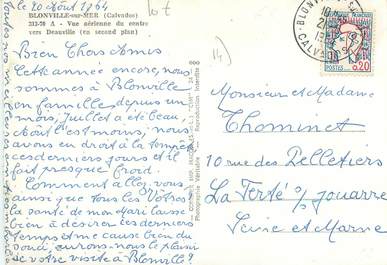 le 20 Août 1964
BLONVILLE-sur-MER (Calvados)
312-70 A - Vue aérienne du centre
vers Deauville (en second plan)
Bien Chers Amis
Cette année encore, nous
sommes à Blonville
en famille depuis un
mois, Juillet a été beau,
Août l'est moins, nous
avons eu droit à la tempête
ces derniers jours et il
fait presque froid.
Comment allez vous
ainsi que tous les Vôtres
la santé de mon Mari laisse
bien à désirer ces derniers
temps et me cause bien du
souci, aurons-nous le plaisir
de votre visite à Blonville?
Reproduction Interdite
BLONVILLE
CALVADOS
POSTES
0,20
Monsieur et Madame
Thominet
10 rue des Pelletiers
La Ferté s/ Jouarre
Seine et Marne